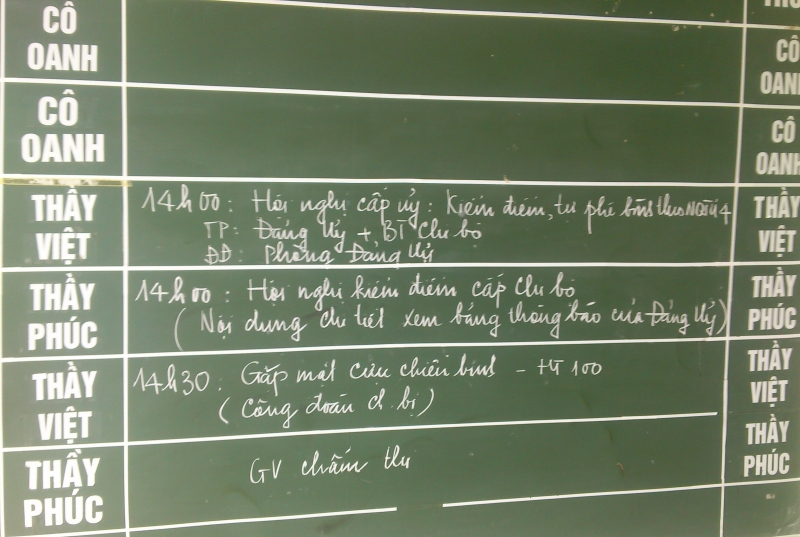 CÔ OANH
CÔ OANH
THẦY VIỆT
14h00: Hội nghị cấp ủy: Kiểm điểm, tự phê bình theo NQTW4
TP: Đảng ủy + BT Chi bộ
ĐĐ: Phòng Đảng ủy
THẦY PHÚC
14h00: Hội nghị kiểm điểm cấp Chi bộ
(Nội dung chi tiết xem bảng thông báo của Đảng ủy)
THẦY VIỆT
14h30: Gặp mặt cựu chiến binh - HT 100
(Công đoàn ch bị)
THẦY PHÚC
GV chấm thi
CÔ OANH
CÔ OANH
THẦY VIỆT
THẦY PHÚC
THẦY VIỆT
THẦY PHÚC